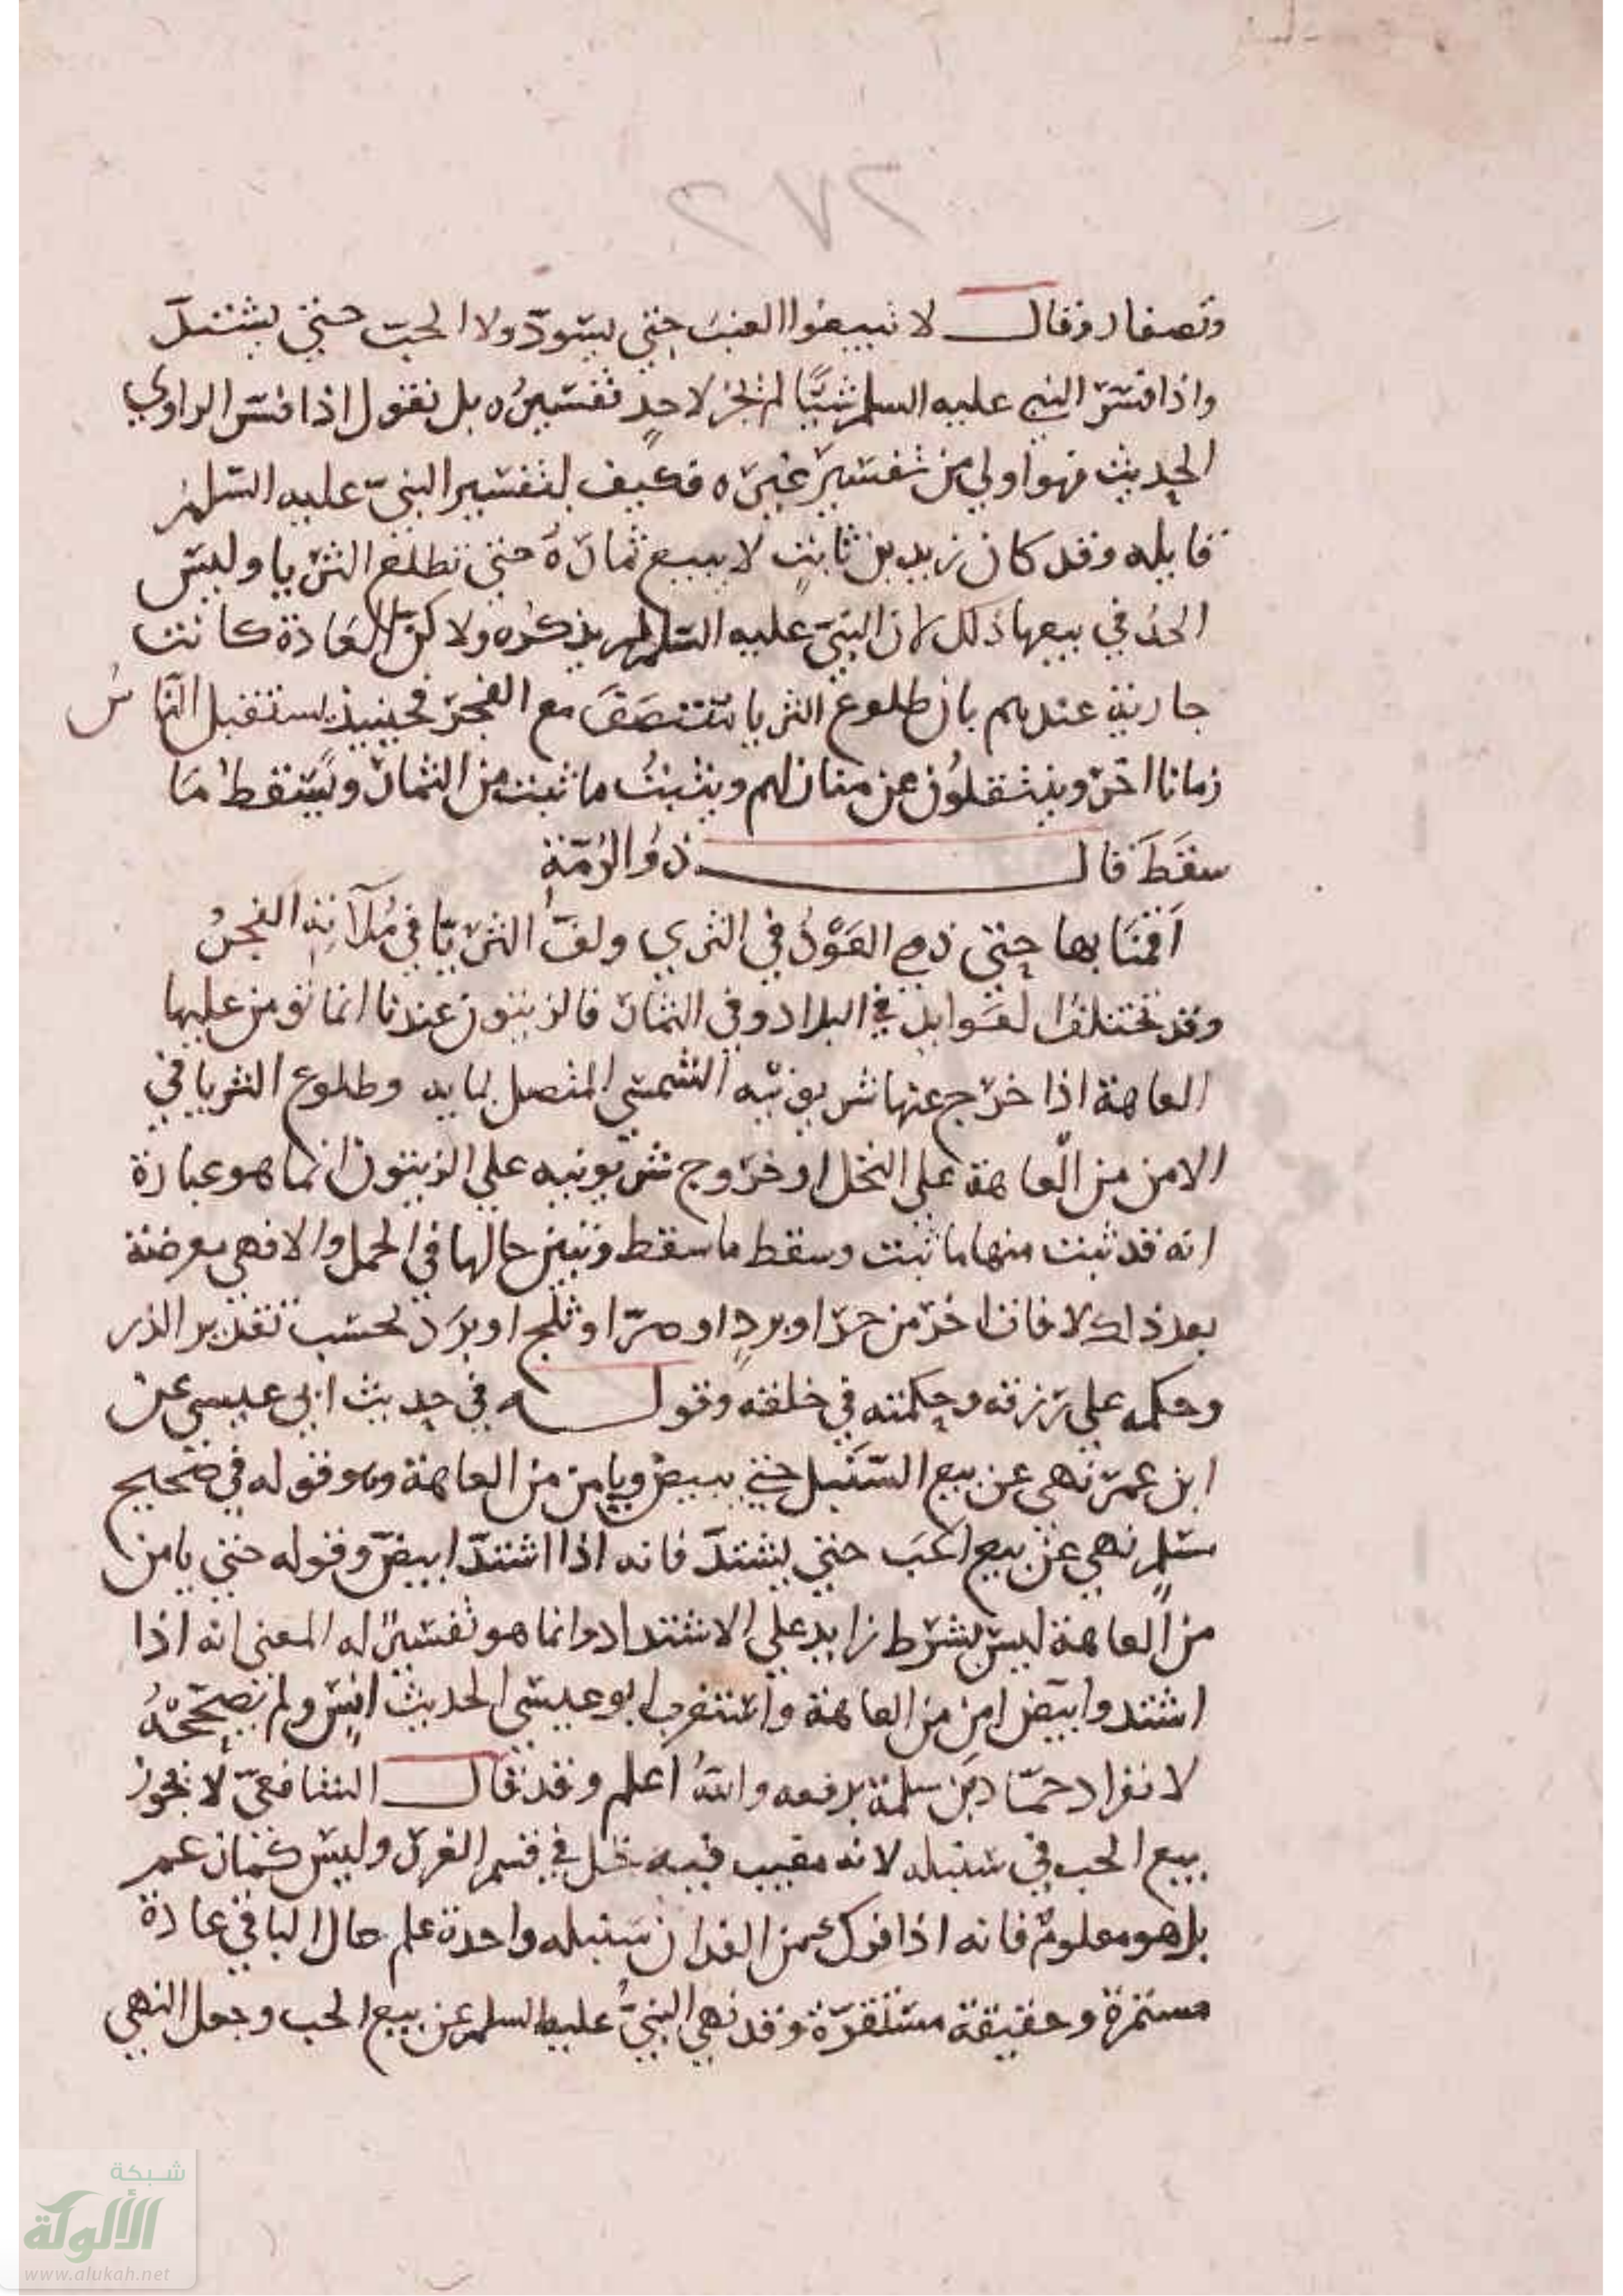 ٢٧٢
وتصفار وقال لا تبيعوا العنب حتى يسودّ ولا الحبّ حتى يشتدّ
واذا فسّر النبي عليه السلم شيًّا لم يجز لاحدٍ تفسيرُه بل نقول اذا فسّر الراوي
الحديث فهو اولي من تفسير غيره فكيف بتفسير النبيّ عليه السّلم
قايله وقد كان زيد بن ثابت لا يبيع ثماره حتى تطلع الثريا وليس
الحدُ في بيعها ذلك لان النبيّ عليه السّلم لم يذكره ولاكنّ العَادة كانت
جارية عندهم بان طلوع الثريا مع الفجر فحينيذ يستقبل النّاسُ
زمانا اخر وينتقلُون عن منازلهم ويثبتُ ما ثبت من الثمار ويَسْقط مَا
سقَطَ قال ذوُ الرُمّة
اَقمنَا بها حتى ذوي العَوْدُ في الثري ولفَّ الثريّا في مُلآتِه الفجرُ
وقد تختلف العَوايد في البلاد وفي الثمار فالزيتون عندنا انما تومن عليها
العاهة اذا خرج عنها شر يونيه الشمسي المتصل بمايه وطلوع الثريا في
الامن من العاهة علي النخل او خروج شر يونيه علي الزيتون انما هو عبارة
انه قد ثبت منها ما ثبت وسقط ما سقط وتبيّن حالها في الحمل والا فهي معرضة
بعد ذلك لافات اخر من حرّ او بردٍ او صرّ او ثلج او برَد بحسب تقدير الذر
وحكمه علي رزقه وحكمته في خلقه وقوله في حديث ابي عيسى عن
ابن عمر نهى عن بيع السّنبل حتى يبيضّ ويامن من العاهة وهو قوله في صحيح
مسلم نهي عن بيع الحَب حتى يشتدّ فانه اذا اشتدّ ابيضّ وقوله حتى يامن
من العاهة ليس بشرط زايد علي الاشتداد وانما هو تفسيرٌ له المعنى انه اذا
اشتد وابيضّ امن من العاهة واستغرب ابو عيسى الحديث انس ولم يصحّحْهُ
لانفراد حمّاد بن سلمة برفعه والله اعلم وقد قال الشافعيّ لا يجوز
بيع الحب في سنبله لانه مغيب فيه دخل في قسم الغرر وليس كذلك
بل هو معلومٌ فانه اذا فرك من الفدان سَنبله واحدة علم حال الباقي عادة
مستمرة وحقيقة مستقرّة وقد نهى النبيُّ عليه السلم عن بيع الحب وجعل النهي
شبكة
الألوكة
www.alukah.net